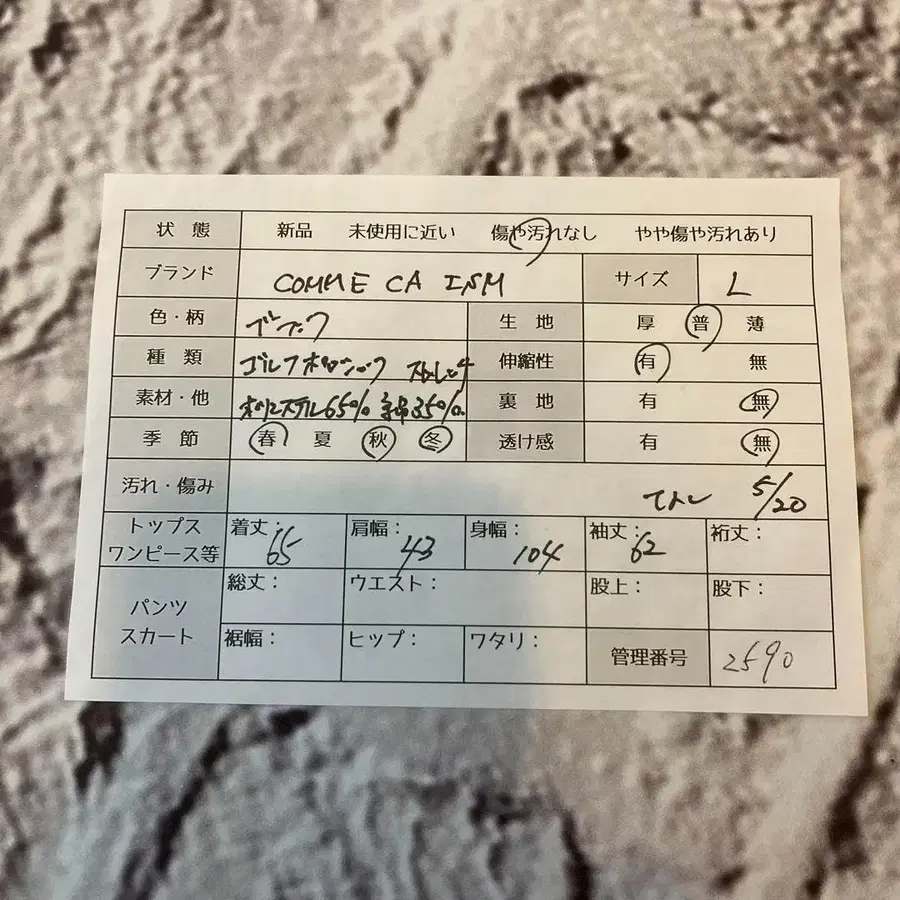 状 態 新品 未使用に近い 傷や汚れなし やや傷や汚れあり
ブランド COMME CA ISM サイズ L
色・柄 生 地 厚 普 薄
種 類 ゴルフ 伸縮性 有 無
素材・他 ポリエステル65% 35% 裏 地 有 無
季 節 春 夏 秋 冬 透け感 有 無
汚れ・傷み 5/20
トップス ワンピース等 着丈: 65 肩幅: 43 身幅: 104 袖丈: 62 裄丈:
パンツ スカート 総丈: ウエスト: 股上: 股下:
裾幅: ヒップ: ワタリ: 管理番号 2590